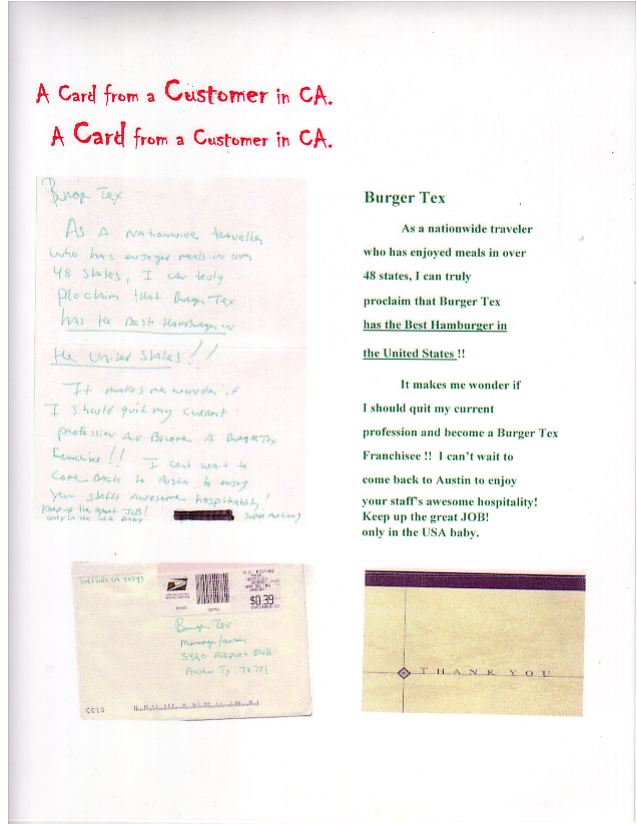 A Card from a Customer in CA.
A Card from a Customer in CA.
Burger Tex
As A Nationwide traveller
who has enjoyed meals in over
48 states, I can truly
proclaim that Burger Tex
has the Best Hamburger in
the United States!!
It makes me wonder if
I should quit my current
profession and Become A Burger Tex
Franchisee!! I can't wait to
Come Back to Austin to enjoy
your staffs awesome hospitality!
Keep up the great JOB!
only in the USA baby
Burger Tex
As a nationwide traveler
who has enjoyed meals in over
48 states, I can truly
proclaim that Burger Tex
has the Best Hamburger in
the United States !!
It makes me wonder if
I should quit my current
profession and become a Burger Tex
Franchisee !! I can't wait to
come back to Austin to enjoy
your staff's awesome hospitality!
Keep up the great JOB!
only in the USA baby.
U.S. POSTAGE
$0.39
Burger Tex
Manager/owner
5420 Airport Blvd.
Austin
THANK YOU